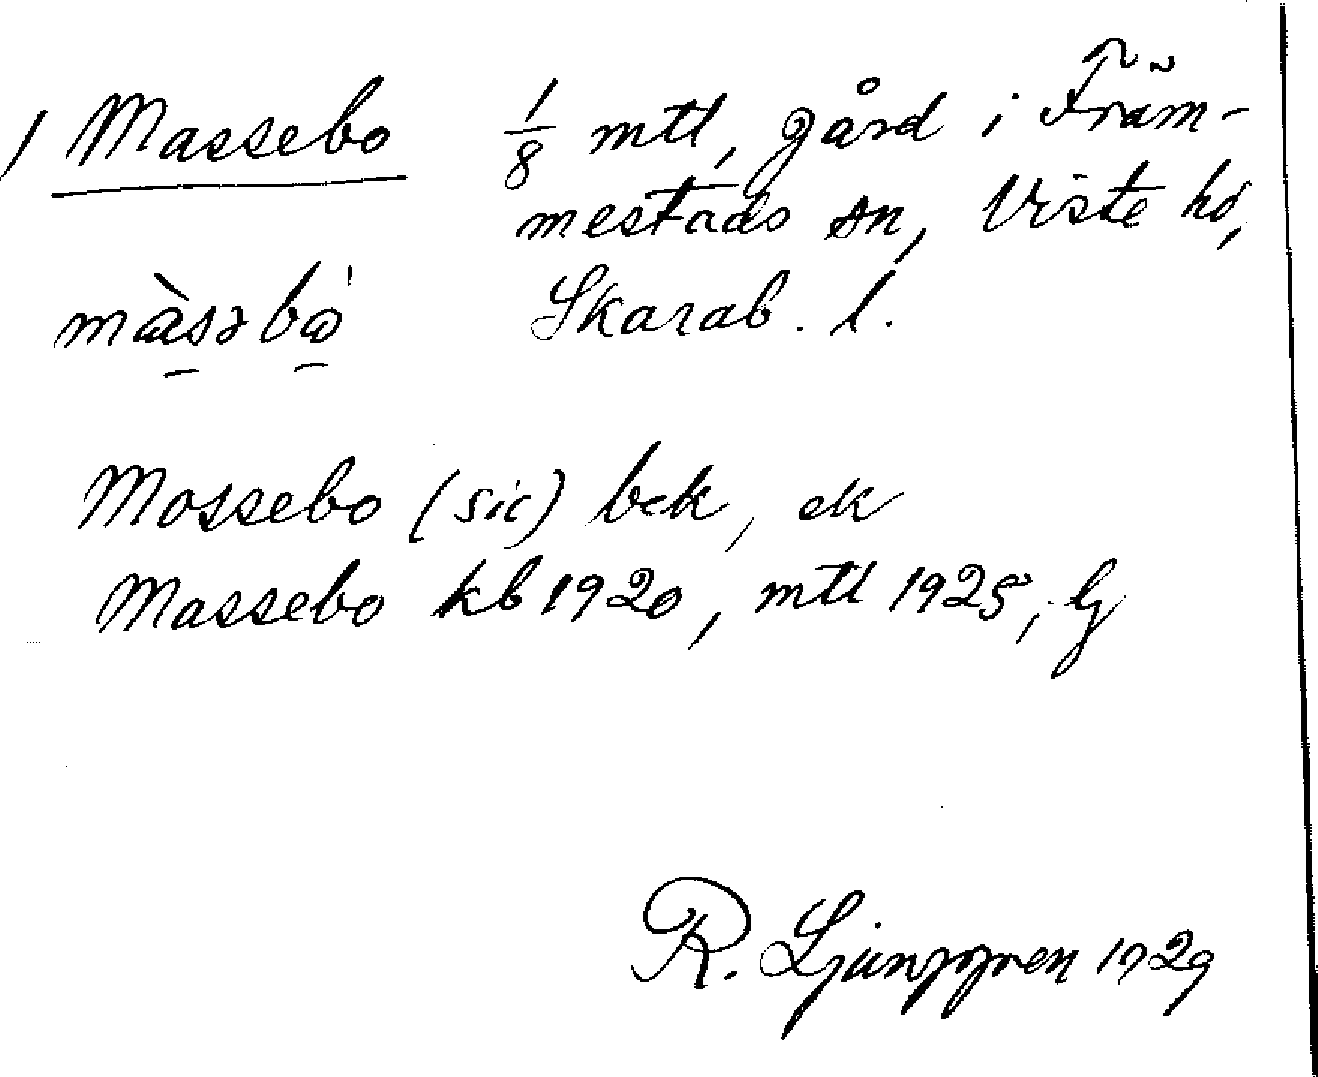 / Massebo 1/8 mtl, gård i Främ-
mestads sn, Viste hd,
màsəbo Skarab. l.
Mossebo (sic) bek, ek
Massebo kb 1920, mtl 1925, Lj
R. Ljunggren 1929